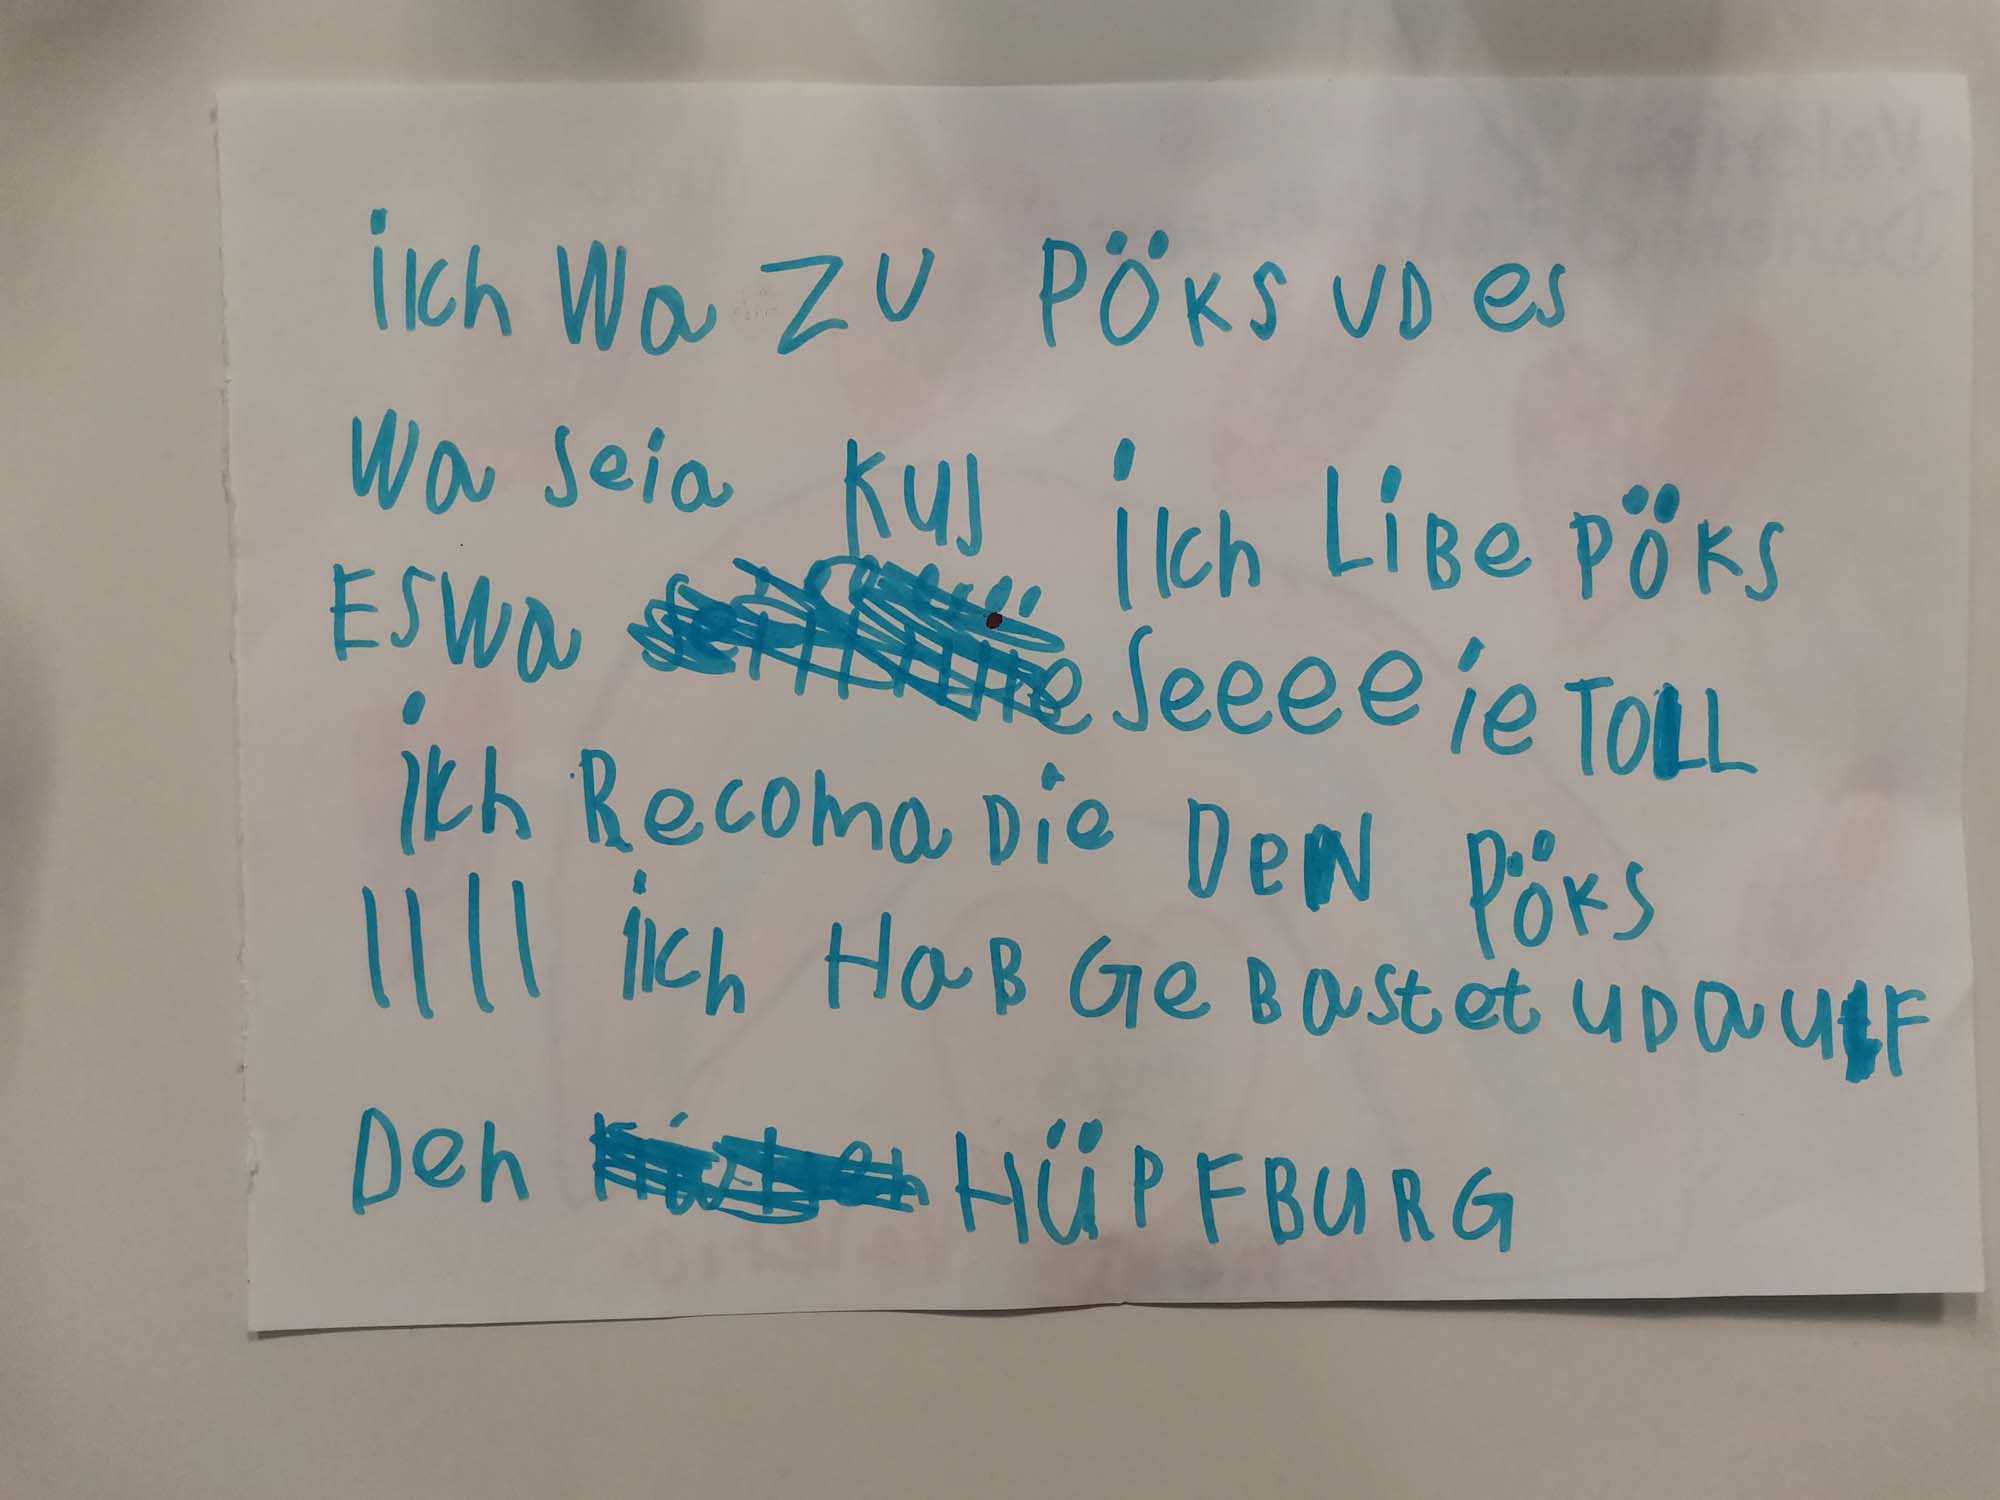 iich Wa ZU PÖKS UD es
Wa seia KUS iich LiBe PÖKS
ESWa Seeee ie TOLL
ich Recoma Die DeN PÖKS
IIII iich HaB Ge Bastet UD aUF
Deh HÜPFBURG